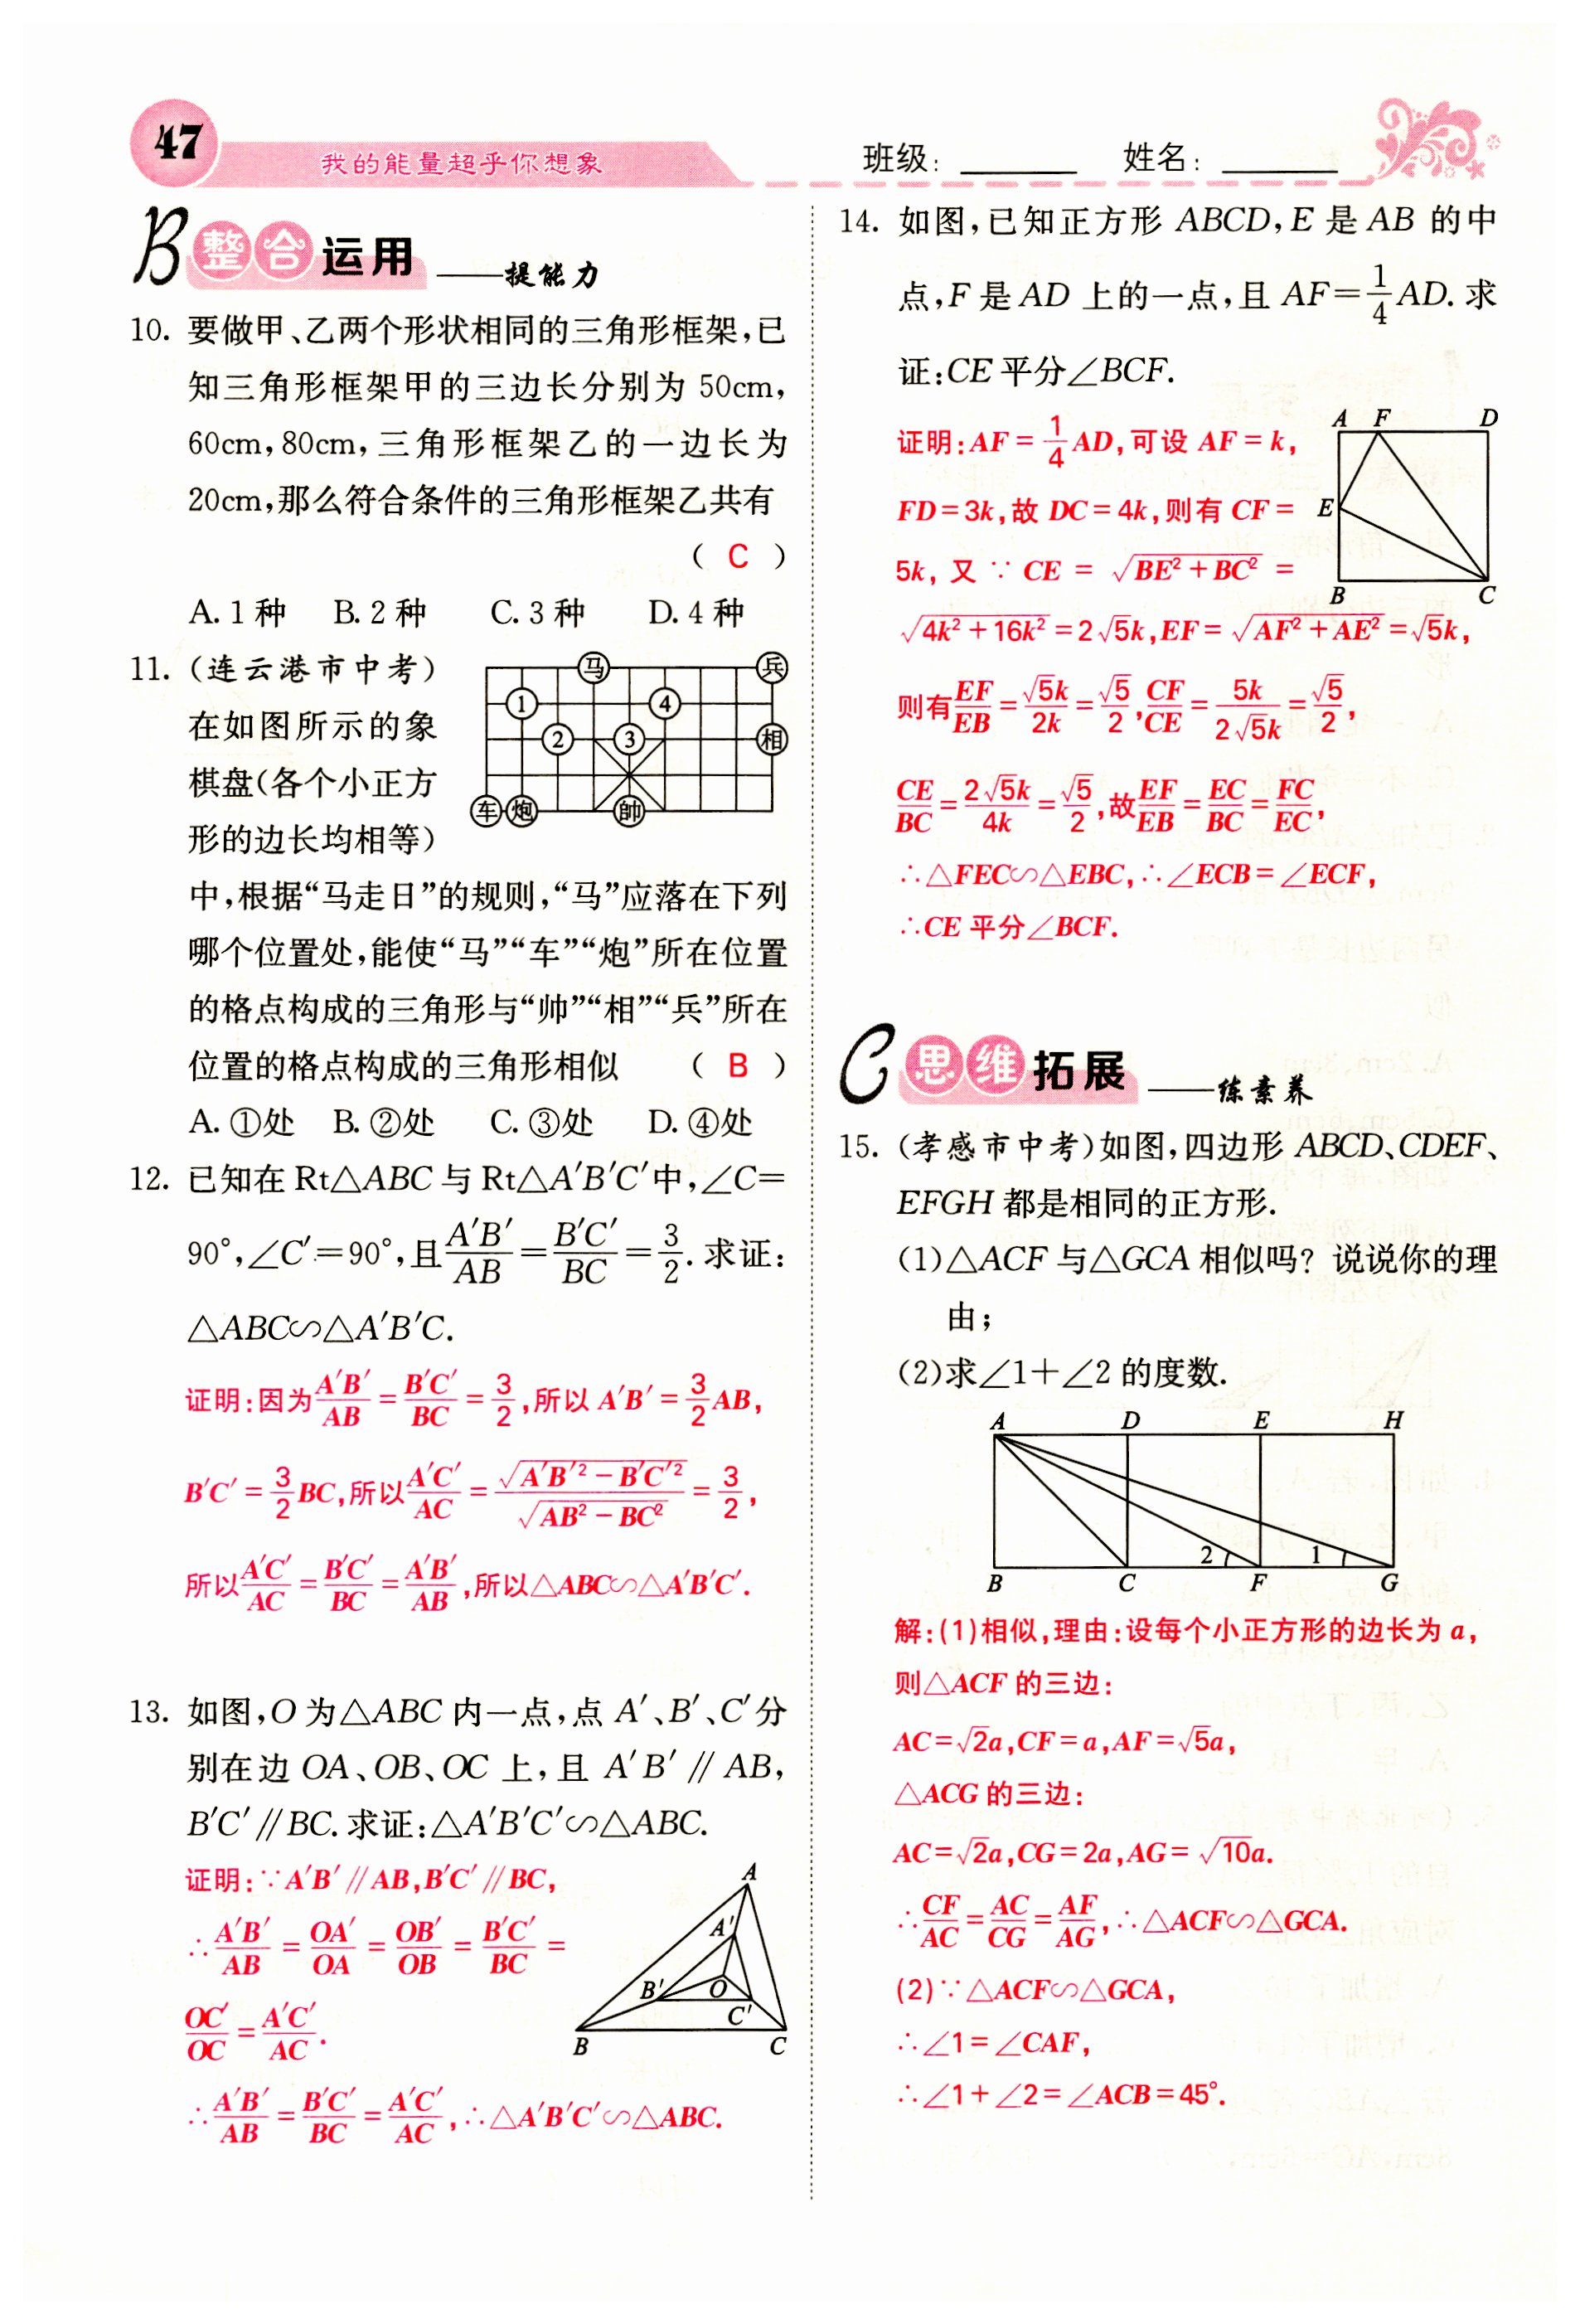 47
我的能量超乎你想象
班级:______ 姓名:______
B 整合运用 ——提能力
10. 要做甲、乙两个形状相同的三角形框架,已
知三角形框架甲的三边长分别为 50cm,
60cm,80cm,三角形框架乙的一边长为
20cm,那么符合条件的三角形框架乙共有
( C )
A. 1 种 B. 2 种 C. 3 种 D. 4 种
11. (连云港市中考)
在如图所示的象
棋盘(各个小正方
形的边长均相等)
马 兵
1 4
2 3 相
车 炮 帥
中,根据“马走日”的规则,“马”应落在下列
哪个位置处,能使“马”“车”“炮”所在位置
的格点构成的三角形与“帅”“相”“兵”所在
位置的格点构成的三角形相似 ( B )
A. ①处 B. ②处 C. ③处 D. ④处
12. 已知在 Rt△ABC 与 Rt△A′B′C′中,∠C=
90°,∠C′=90°,且A′B′/AB=B′C′/BC=3/2. 求证:
△ABC∽△A′B′C.
证明:因为A′B′/AB=B′C′/BC=3/2,所以 A′B′=3/2AB,
B′C′=3/2BC,所以A′C′/AC=√(A′B′²-B′C′²)/√(AB²-BC²)=3/2,
所以A′C′/AC=B′C′/BC=A′B′/AB,所以△ABC∽△A′B′C′.
13. 如图,O 为△ABC 内一点,点 A′、B′、C′分
别在边 OA、OB、OC 上,且 A′B′∥AB,
B′C′∥BC. 求证:△A′B′C′∽△ABC.
证明:∵A′B′∥AB,B′C′∥BC,
∴A′B′/AB=OA′/OA=OB′/OB=B′C′/BC=
OC′/OC=A′C′/AC.
∴A′B′/AB=B′C′/BC=A′C′/AC,∴△A′B′C′∽△ABC.
A
A′
B′ O
C′
B C
14. 如图,已知正方形 ABCD,E 是 AB 的中
点,F 是 AD 上的一点,且 AF=1/4AD. 求
证:CE 平分∠BCF.
证明:AF=1/4AD,可设 AF=k,
FD=3k,故 DC=4k,则有 CF=
5k,又∵CE=√(BE²+BC²)=
√(4k²+16k²)=2√5k,EF=√(AF²+AE²)=√5k,
则有EF/EB=√5k/2k=√5/2,CF/CE=5k/2√5k=√5/2,
CE/BC=2√5k/4k=√5/2,故EF/EB=EC/BC=FC/EC,
∴△FEC∽△EBC,∴∠ECB=∠ECF,
∴CE 平分∠BCF.
A F D
E
B C
C 思维拓展 ——练素养
15. (孝感市中考)如图,四边形 ABCD、CDEF、
EFGH 都是相同的正方形.
(1)△ACF 与△GCA 相似吗? 说说你的理
由;
(2)求∠1+∠2 的度数.
A D E H
2 1
B C F G
解:(1)相似,理由:设每个小正方形的边长为 a,
则△ACF 的三边:
AC=√2a,CF=a,AF=√5a,
△ACG 的三边:
AC=√2a,CG=2a,AG=√10a.
∴CF/AC=AC/CG=AF/AG,∴△ACF∽△GCA.
(2)∵△ACF∽△GCA,
∴∠1=∠CAF,
∴∠1+∠2=∠ACB=45°.